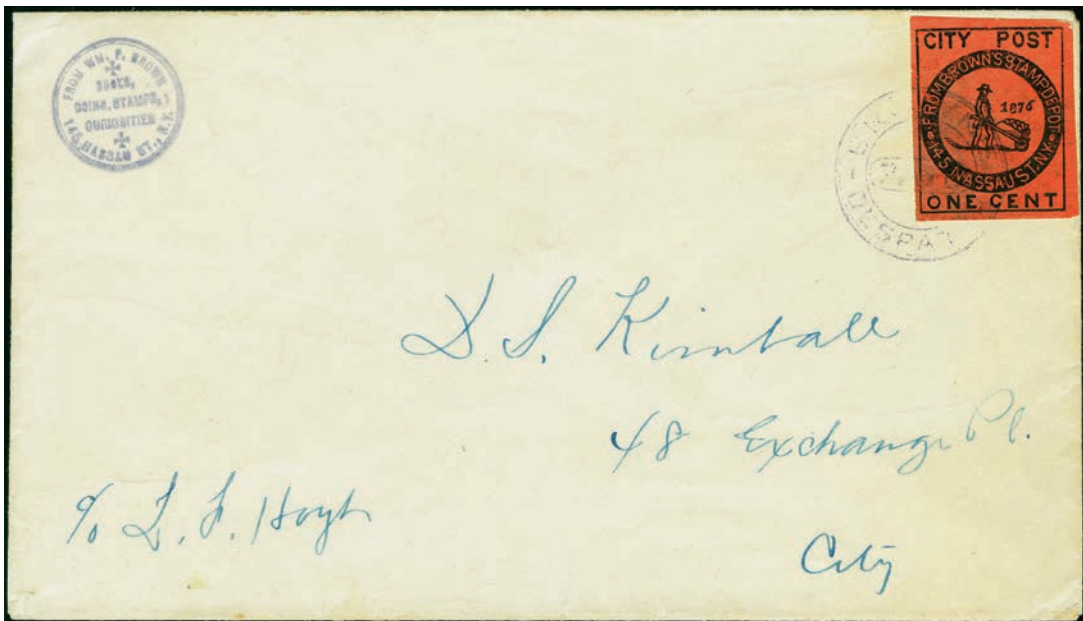 FROM WM. P. BROWN
BOOKS,
COINS, STAMPS,
CURIOSITIES
145 NASSAU ST., N.Y.
CITY POST
FROM BROWN'S STAMP DEPOT
1876
145 NASSAU ST. N.Y.
ONE CENT
DESPAT
D. S. Kimball
48 Exchange Pl.
c/o L. F. Hoyt
City